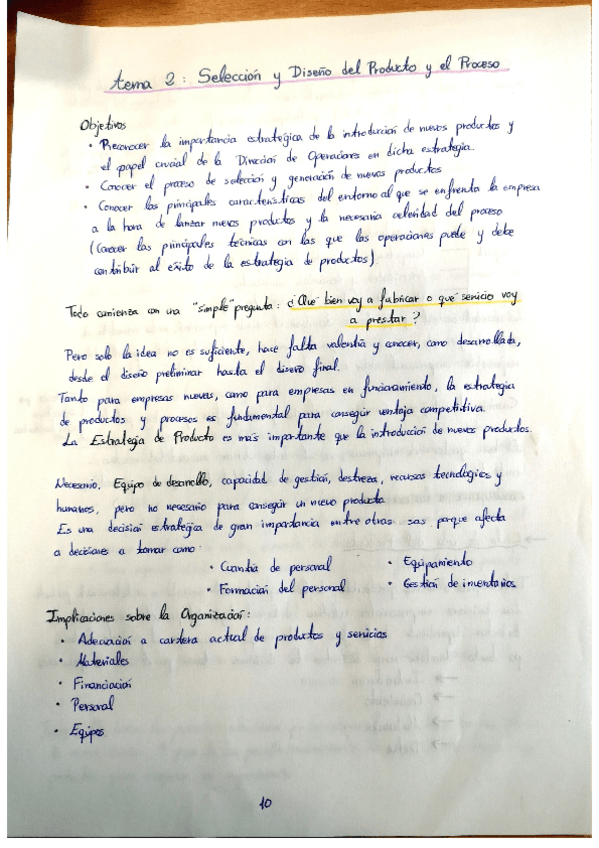 tema 2: Selección y Diseño del Producto y el Proceso
Objetivos
• Reconocer la importancia estratégica de la introducción de nuevos productos y
el papel crucial de la Dirección de Operaciones en dicha estrategia.
• Conocer el proceso de selección y generación de nuevos productos
• Conocer las principales características del entorno al que se enfrenta la empresa
a la hora de lanzar nuevos productos y la necesaria celeridad del proceso
(Conocer las principales técnicas con las que las operaciones puede y debe
contribuir al éxito de la estrategia de productos)
Todo comienza con una "simple" pregunta: ¿Qué bien voy a fabricar o qué servicio voy
a prestar?
Pero solo la idea no es suficiente, hace falta valentía y conocer, como desarrollada,
desde el diseño preliminar hasta el diseño final.
Tanto para empresas nuevas, como para empresas en funcionamiento, la estrategia
de productos y procesos es fundamental para conseguir ventaja competitiva.
La Estrategia de Producto es más importante que la introducción de nuevos productos.
Necesario. Equipo de desarrollo, capacidad de gestión, destreza, recursos tecnológicos y
humanos, pero no necesario para conseguir un nuevo producto
Es una decisión estratégica de gran importancia entre otras porque afecta
a decisiones a tomar como:
• Cuantía de personal • Equipamiento
• Formación del personal • Gestión de inventarios
Implicaciones sobre la Organización:
• Adecuación a cartera actual de productos y servicios
• Materiales
• Financiación
• Personal
• Equipos
10